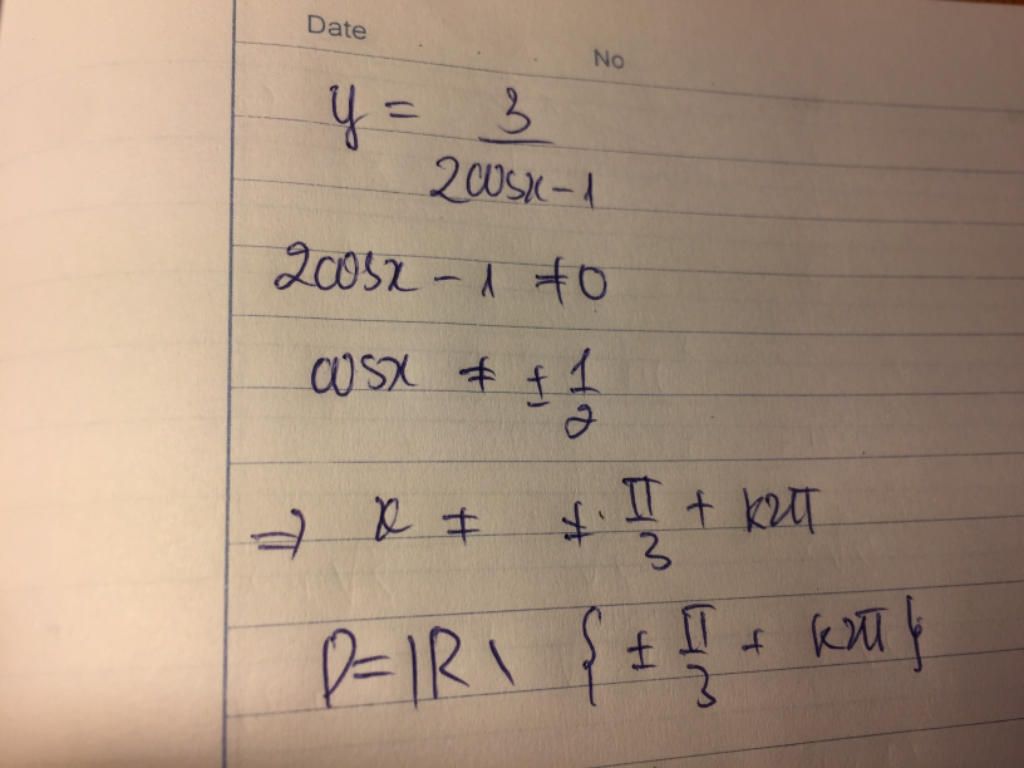 Date
No
y = 3/(2cosx-1)
2cosx - 1 ≠ 0
cosx ≠ ± 1/2
⇒ x ≠ ± π/3 + k2π
D = ℝ \ { ± π/3 + k2π }